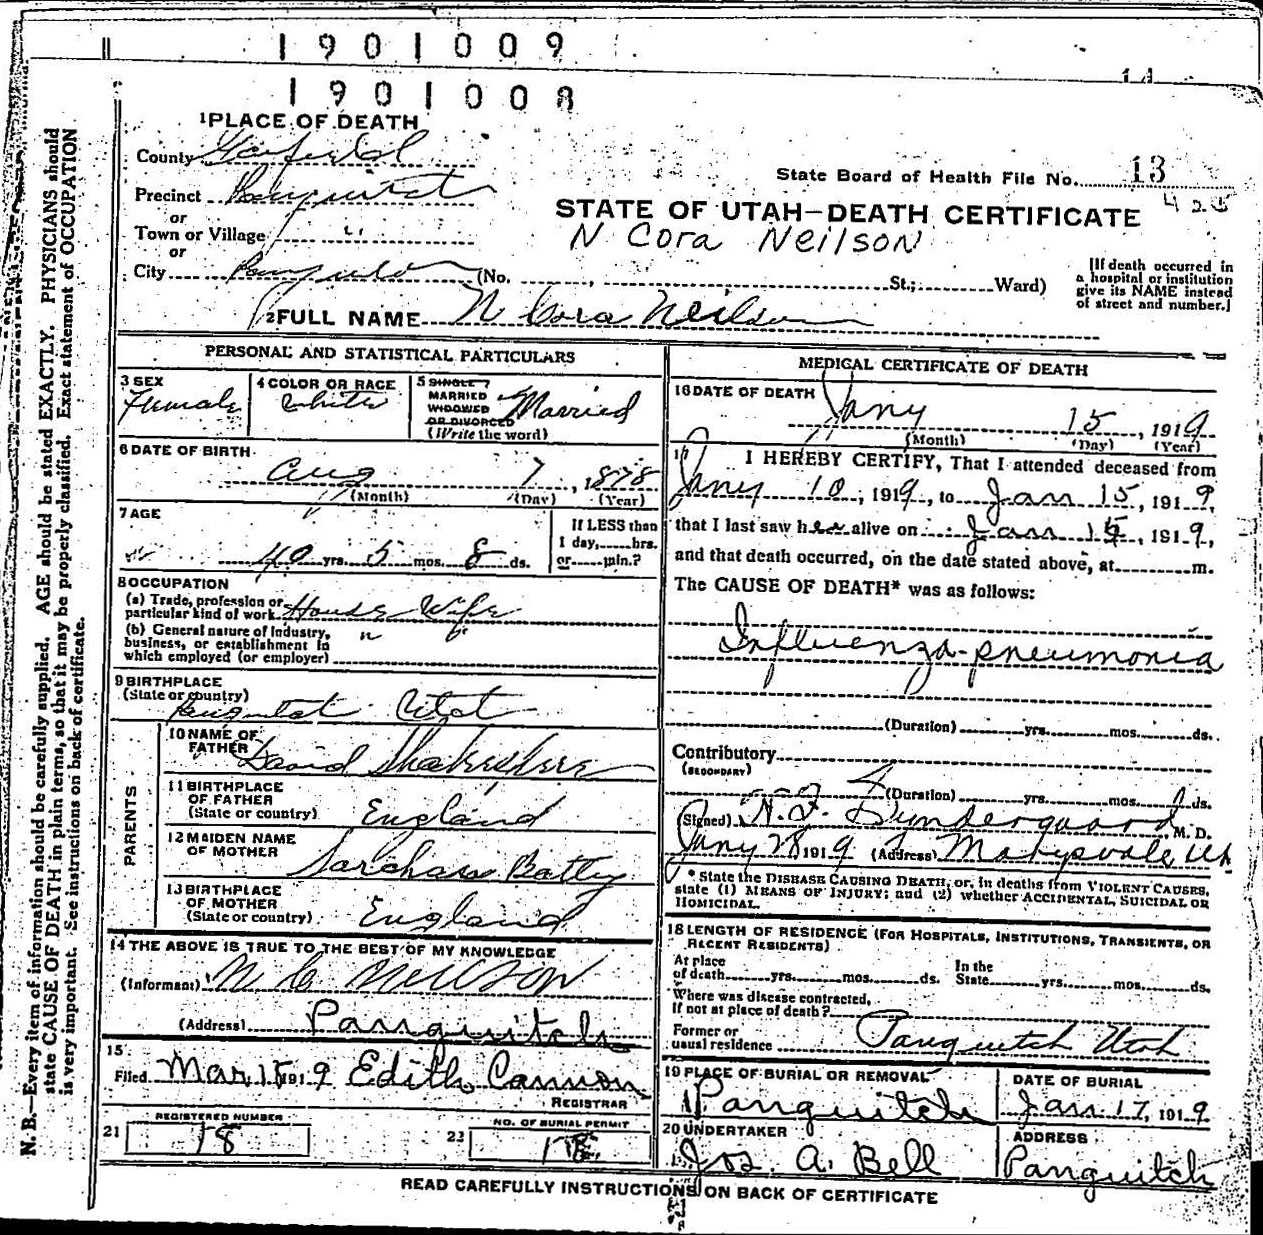 1901009
1901008
1 PLACE OF DEATH
County Garfield
State Board of Health File No. 13
Precinct Panguitch
425
or
Town or Village "
STATE OF UTAH—DEATH CERTIFICATE
N Cora Neilson
or
City (No. St.; Ward)
[If death occurred in
a hospital or institution
give its NAME instead
of street and number.]
2 FULL NAME N Cora Neilson
PERSONAL AND STATISTICAL PARTICULARS
3 SEX
Female
4 COLOR OR RACE
White
5 SINGLE
MARRIED
WIDOWED
OR DIVORCED
(Write the word)
Married
6 DATE OF BIRTH
Aug 7, 1878
(Month) (Day) (Year)
7 AGE
40 yrs. 5 mos. 8 ds.
If LESS than
1 day, hrs.
or min.?
8 OCCUPATION
(a) Trade, profession or
particular kind of work House Wife
(b) General nature of industry,
business, or establishment in
which employed (or employer)
" "
9 BIRTHPLACE
(State or country)
PARENTS
10 NAME OF
FATHER David
11 BIRTHPLACE
OF FATHER
(State or country) England
12 MAIDEN NAME
OF MOTHER Batty
13 BIRTHPLACE
OF MOTHER
(State or country) England
14 THE ABOVE IS TRUE TO THE BEST OF MY KNOWLEDGE
(Informant) N C Neilson
(Address) Panguitch
15
Filed Mar 15 1919 Edith Cannon
REGISTRAR
REGISTERED NUMBER
21 18
NO. OF BURIAL PERMIT
22
MEDICAL CERTIFICATE OF DEATH
16 DATE OF DEATH
Jany 15, 1919
(Month) (Day) (Year)
17 I HEREBY CERTIFY, That I attended deceased from
Jany 10, 1919, to Jan 15, 1919,
that I last saw her alive on Jan 15, 1919,
and that death occurred, on the date stated above, at m.
The CAUSE OF DEATH* was as follows:
Influenza-pneumonia
(Duration) yrs. mos. ds.
Contributory
(SECONDARY)
(Duration) yrs. mos. ds.
(Signed) M. D.
Jany 28 1919 (Address) Marysvale Ut
* State the DISEASE CAUSING DEATH, or, in deaths from VIOLENT CAUSES,
state (1) MEANS OF INJURY; and (2) whether ACCIDENTAL, SUICIDAL OR
HOMICIDAL.
18 LENGTH OF RESIDENCE (FOR HOSPITALS, INSTITUTIONS, TRANSIENTS, OR
RECENT RESIDENTS)
At place
of death yrs. mos. ds.
In the
State yrs. mos. ds.
Where was disease contracted,
If not at place of death?
Former or
usual residence Panguitch Utah
19 PLACE OF BURIAL OR REMOVAL
Panguitch
DATE OF BURIAL
Jan. 17, 1919
20 UNDERTAKER
Jos. A. Bell
ADDRESS
Panguitch
READ CAREFULLY INSTRUCTIONS ON BACK OF CERTIFICATE
N. B.—Every item of information should be carefully supplied. AGE should be stated EXACTLY. PHYSICIANS should
state CAUSE OF DEATH in plain terms, so that it may be properly classified. Exact statement of OCCUPATION
is very important. See instructions on back of certificate.